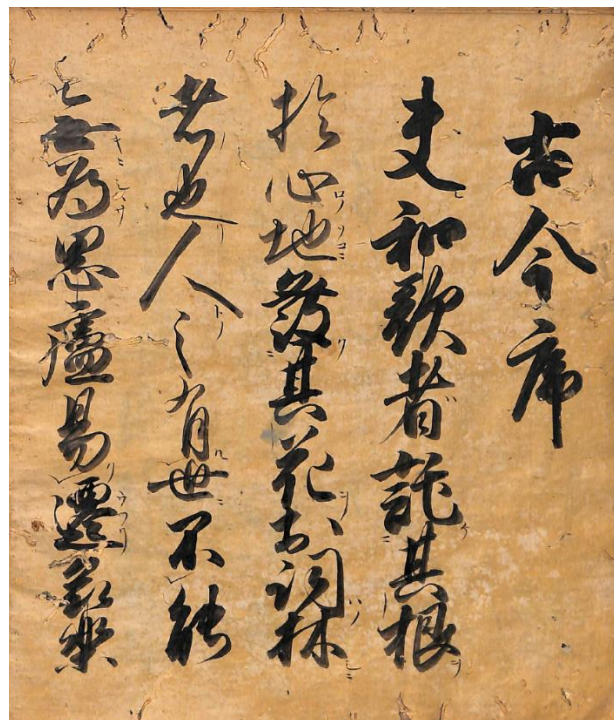 古今序
夫和歌者託其根
於心地發其花於詞林
者也人之在世不能
無為思慮易遷哀樂